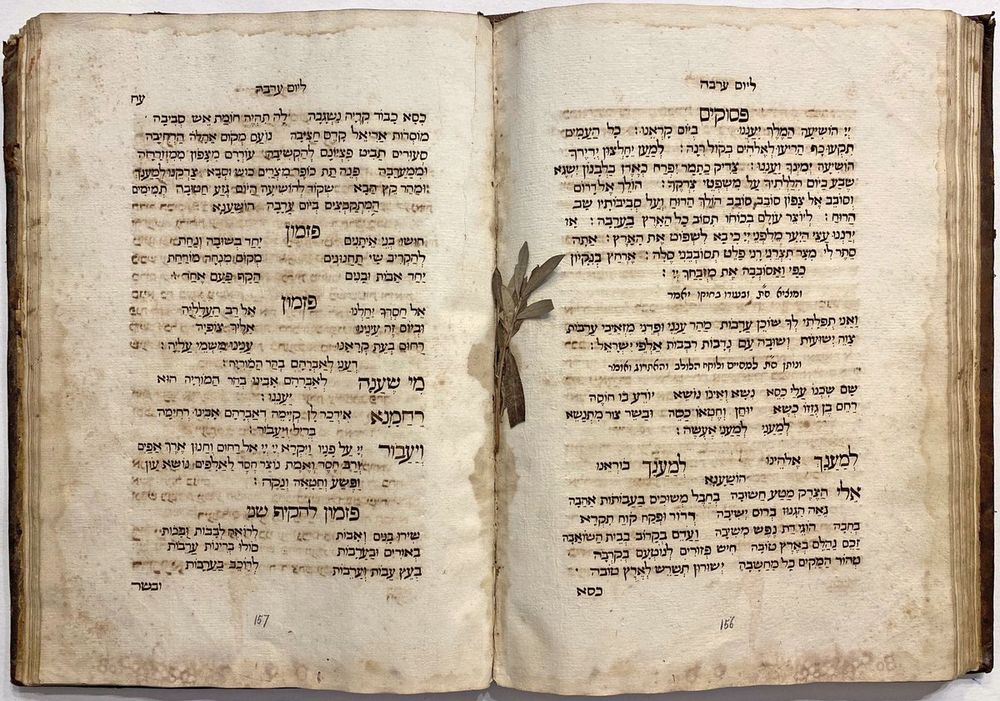 ליום ערבה
פסוקים
יי הושיעה המלך יעננו ביום קראנו: כל העמים
תקעו כף הריעו לאלהים בקול רנה: למען יחלצון ידידיך
הושיעה ימינך ועננו: צדיק כתמר יפרח כארז בלבנון ישגא
שבע ביום הללתיך על משפטי צדקך: הולך אל דרום
וסובב אל צפון סובב סובב הולך הרוח ועל סביבותיו שב
הרוח: ליוצר עולם בכוחו תסוב כל הארץ בערבה: אז
ירננו עצי היער מלפני יי כי בא לשפוט את הארץ: אתה
סתר לי מצר תצרני רני פלט תסובבני סלה: ארחץ בנקיון
כפי ואסובבה את מזבחך יי:
ומוציא ס״ת ובשרו בחוקו יאמר
ואני תפלתי לך שוכן ערבות מהר ענני ופדני מזאיבי ערבות
צוה ישועות ושובה עם נדבות רבבות אלפי ישראל:
ונותן ס״ת למסיים ולוקח הלולב והאתרוג ואומר
שם שכנו עלי כסא נשא ואינו נושא יודע בו חוסה
רחם בן גוזו כשא יוחן וחטאו כסה ובשר צור מתנשא
למעני למעני אעשה:
למענך אלהינו למענך בוראנו
הושענא
אלי הצדק מטע חשובה בחבל משוכים בעבותות אהבה
נאה הגנוז ברום ישיבה דרור ופקח קוח תקרא
בחבה הוגי דת נפש משיבה ועדם בקרוב בבית השואבה
זכם נהלם בארץ טובה חיש פזורים לנוטעם בקרבה
טהור המקים כל מחשבה ישורון תשרש לארץ טובה
כסא
156
ליום ערבה
עח
כסא כבוד קריה נשגבה לה תהיה חומת אש סביבה
מוסדות אריאל קדם חציבה נועם מקום אהלה הרחיבה
סעורים תביט פציינם להקשיבה עוררם מצפון ממזרחה
וממערבה פנה תת כופר מצרים כוש וסבא צדקנו למענך
ומהר קץ הבא שקוד להושיעה היום גזע חטובה תמימים
המתקבצים ביום ערבה הושענא
פזמון
חושו בני איתנים יחד בשובה ונחת
להקריב שי תחנונים מקום מנחה מורחת
יחד אבות ובנים הקף פעם אחר
פזמון
אל חסדך יחלנו אל רב העלליה
וביום זה עינינו אליך צופיה
רחום בעת קראנו עננו משמי עליה:
דעני לאברהם בהר המוריה:
מי שענה לאברהם אבינו בהר המוריה הוא
יעננו:
רחמנא אידכר לן קיימה דאברהם אבינו רחימה
בדיל ויעבור:
ויעבור יי על פניו ויקרא יי יי אל רחום וחנון ארך אפים
ורב חסד ואמת נוצר חסד לאלפים נושא עון
ופשע וחטאה ונקה:
פזמון להקיף שני
שירו בנים ואבות לרואה לבבות וצפונות
באורים ובערבות סולו ברינות ערבות
בעץ עבות וערבות לרוכב בערבות
ובשר
157